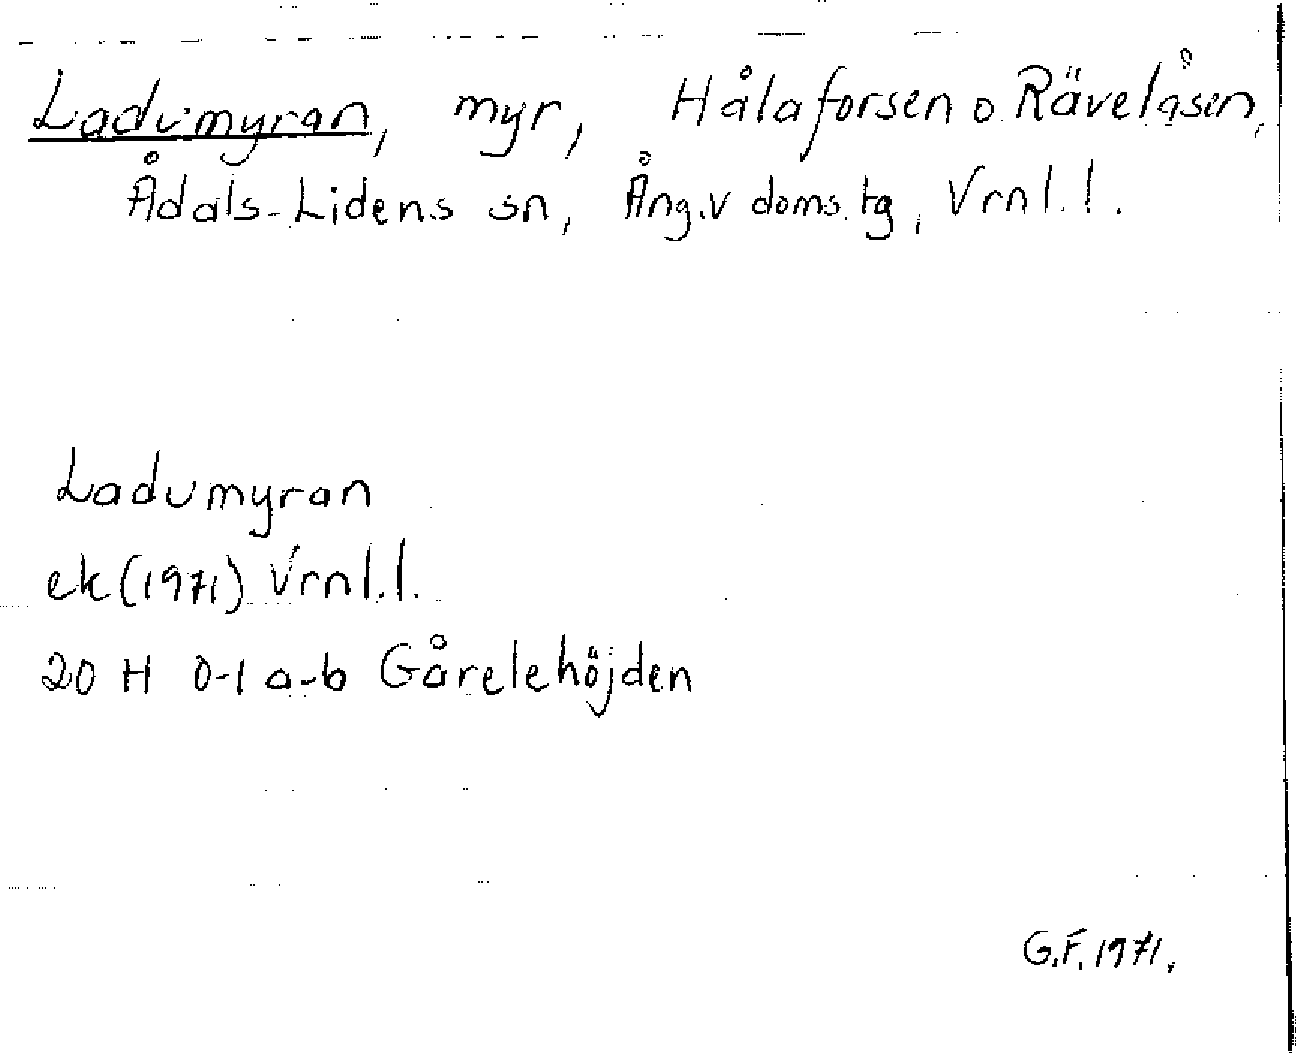 Ladumyran, myr, Hålaforsen o. Rävelåsen,
Ådals-Lidens sn, Ång.v doms.tg, Vrnl.l.
Ladumyran
ek(1971) Vrnl.l.
20 H 0-1 a-b Gårelehöjden
G.F. 1971.